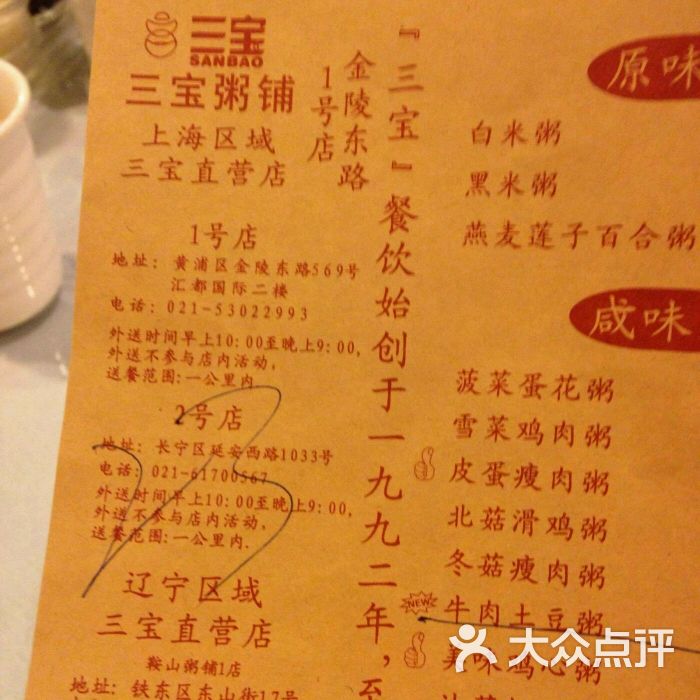 三宝
SANBAO
三宝粥铺
上海区域
三宝直营店
1号店
地址：黄浦区金陵东路569号
汇都国际二楼
电话：021-53022993
外送时间早上10:00至晚上9:00,
外送不参与店内活动,
送餐范围:一公里内
2号店
地址：长宁区延安西路1033号
电话：021-61700567
外送时间早上10:00至晚上9:00,
外送不参与店内活动,
送餐范围:一公里内.
辽宁区域
三宝直营店
鞍山粥铺1店
地址：铁东区东山街17号
金陵东路
1号店
『三宝』餐饮始创于一九九二年,至
原味
白米粥
黑米粥
燕麦莲子百合粥
咸味
菠菜蛋花粥
雪菜鸡肉粥
皮蛋瘦肉粥
北菇滑鸡粥
冬菇瘦肉粥
NEW
牛肉土豆粥
美味鸡心粥
大众点评